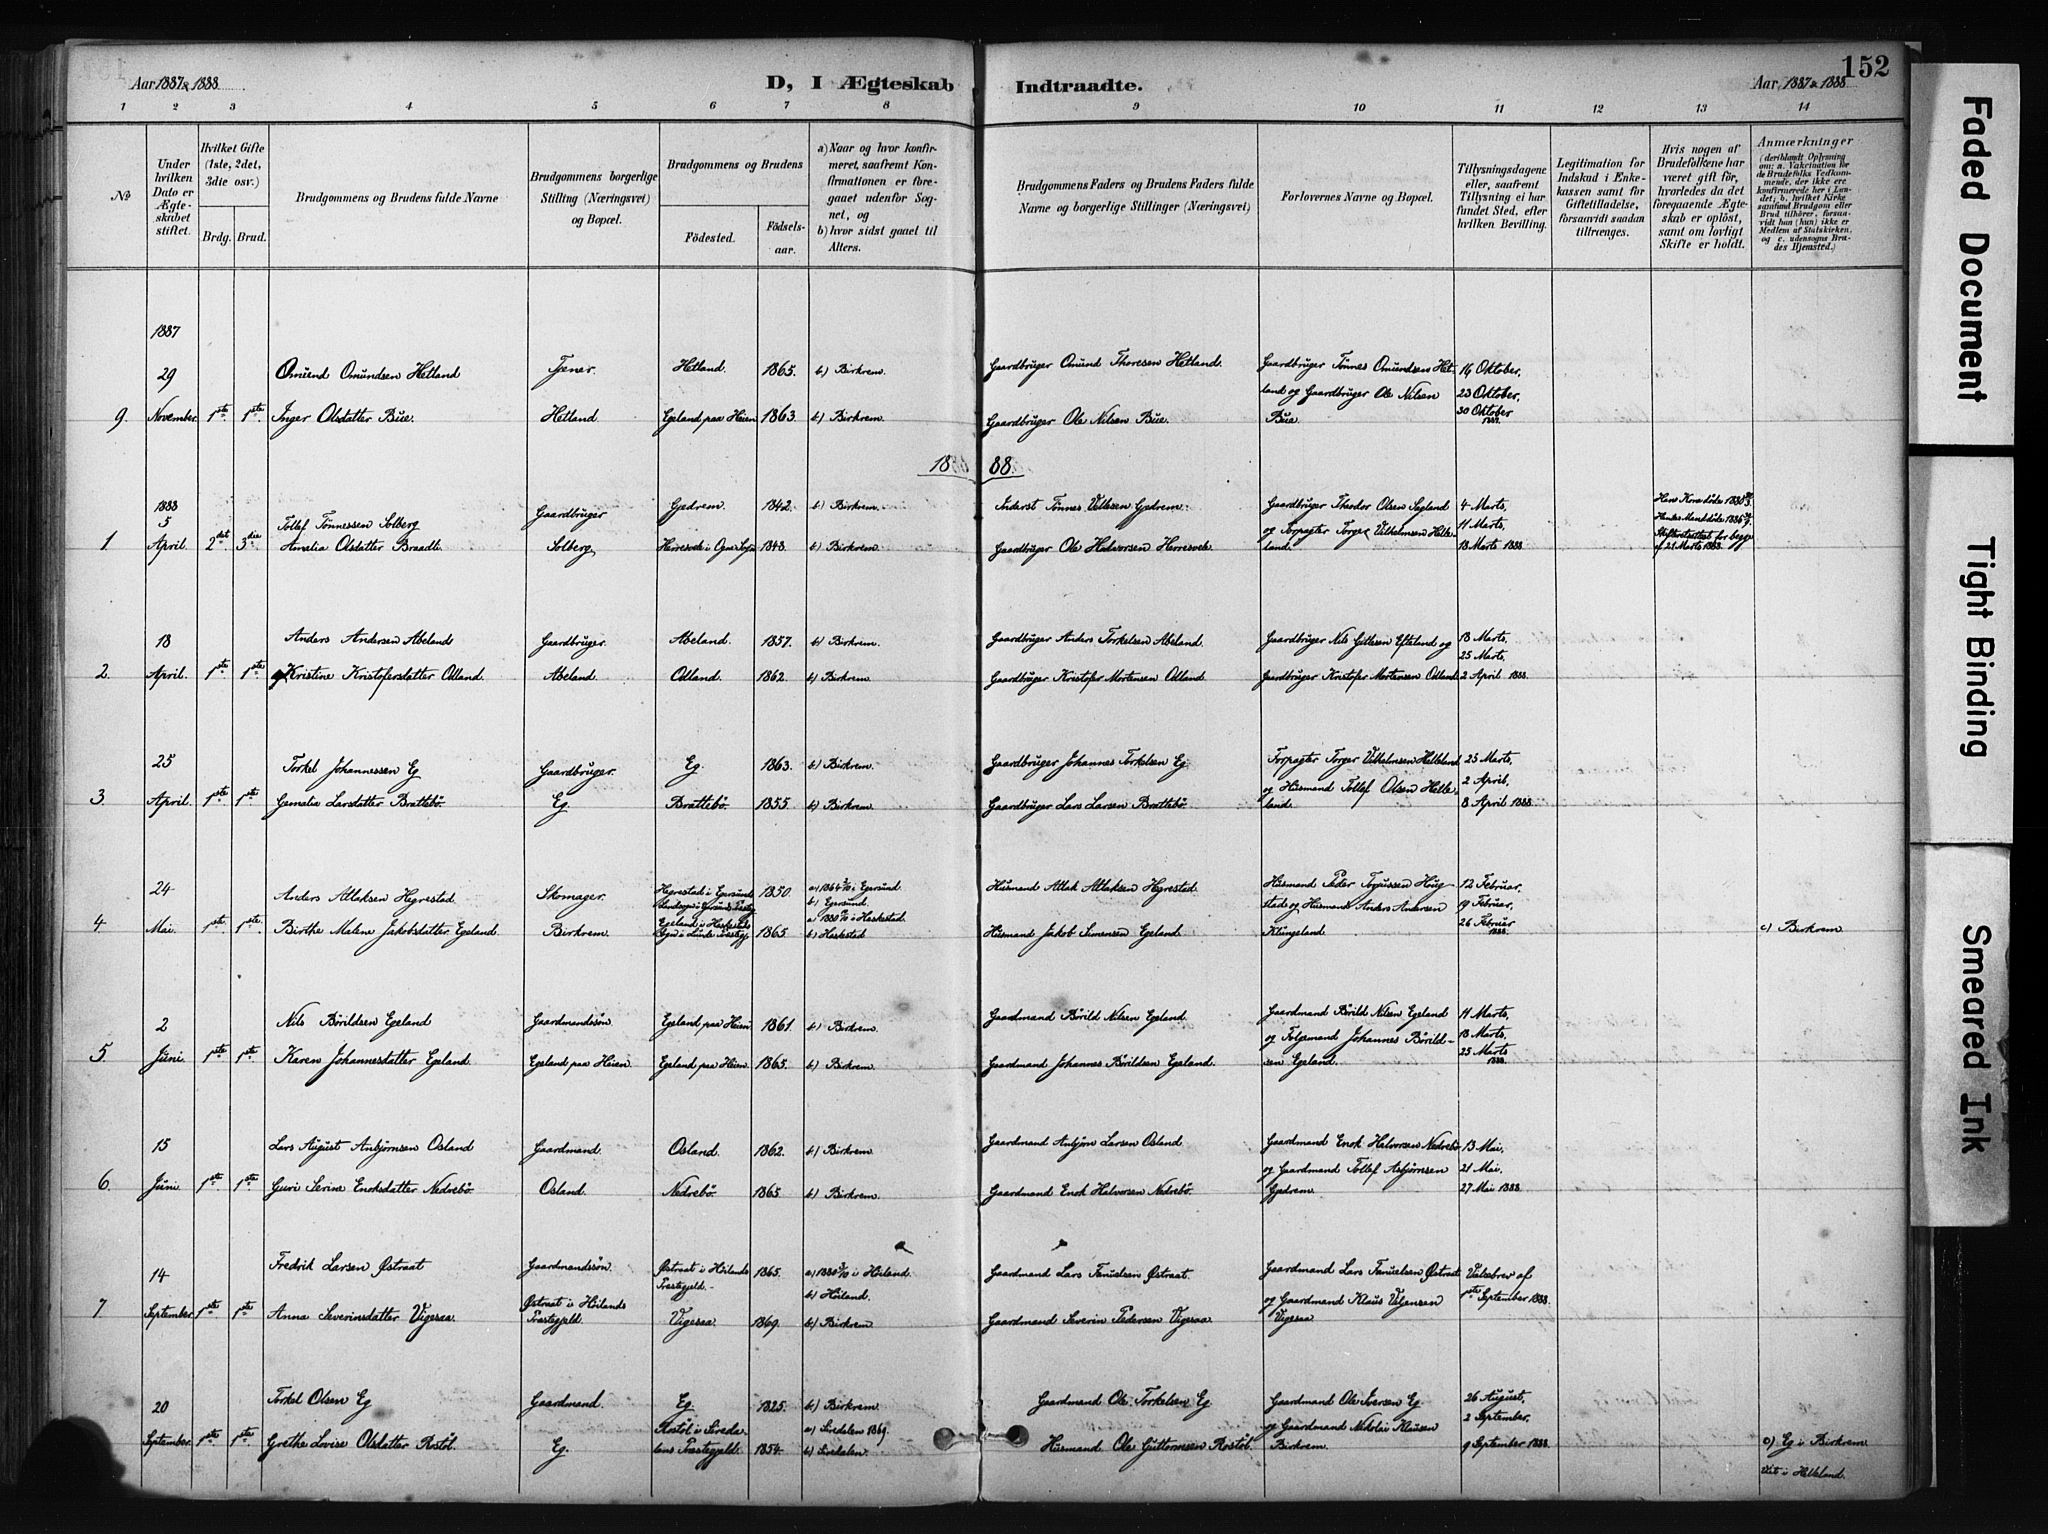 152
Aar 1887 & 1888
D, I Ægteskab Indtraadte.
Aar 1887 & 1888
1 2 3 4 5 6 7 8 9 10 11 12 13 14
No
Under hvilken Dato er Ægteskabet stiftet.
Hvilket Gifte (1ste, 2det, 3die osv.)
Brdg. Brud.
Brudgommens og Brudens fulde Navne
Brudgommens borgerlige Stilling (Næringsvei) og Bopæl.
Brudgommens og Brudens
Födested. Födselsaar.
a) Naar og hvor konfirmeret, saafremt Konfirmationen er foregaaet udenfor Sognet, og
b) hvor sidst gaaet til Alters.
Brudgommens Faders og Brudens Faders fulde Navne og borgerlige Stillinger (Næringsvei)
Forlovernes Navne og Bopæl.
Tillysningsdagene eller, saafremt Tillysning ei har fundet Sted, efter hvilken Bevilling.
Legitimation for Indskud i Enkekassen samt for Giftetilladelse, forsaavidt saadan tiltrænges.
Hvis nogen af Brudefolkene har været gift för, hvorledes da det foregaaende Ægteskab er oplöst, samt om lovligt Skifte er holdt.
Anmærkninger (deriblandt Oplysning om: a. Vakcination för Brudefolks Vedkommende, der ikke ere konfirmerede her i Landet; b. hvilket Kirkesamfund Brudgom eller Brud tilhörer, forsaavidt han (hun) ikke er Medlem af Statskirken, og c. udensogns Brudes Hjemsted.)
1887
29 Omund Omundsen Hetland Tjener. Hetland. 1865. b) Birkrem. Gaardbruger Omund Thoresen Hetland. Gaardbruger Tönnes Omundsen Het- 16 Oktober,
land og Gaardbruger Ole Nilsen 23 Oktober,
9. November 1ste 1ste Inger Olsdatter Bue. Hetland Egeland paa Heien 1863. b) Birkrem. Gaardbruger Ole Nilsen Bue. Bue. 30 Oktober
1888.
1888
5 Tollef Tönnessen Solberg Gaardbruger Gjedrem. 1842. b) Birkrem. Inderst Tönnes Gjedrem. Gaardbruger Theodor Olsen 4 Marts,
og Forpagter Torger Vilhelmsen Helle- 11 Marts,
1. April. 2det 3die Amelia Olsdatter Braadli. Solberg. Herresvek i Ogne Sogn 1848. b) Birkrem. Gaardbruger Ole Halvorsen Herresvek. land. 18 Marts 1888
18 Anders Andersen Abeland Gaardbruger. Abeland 1857. b) Birkrem. Gaardbruger Anders Torkelsen Abeland. Gaardbruger Nils Gittesen Efteland og 18 Marts,
25 Marts,
2. April. 1ste 1ste Kristine Kristofersdatter Odland. Abeland Odland. 1862. b) Birkrem. Gaardbruger Kristofer Mortensen Odland. Gaardbruger Kristofer Mortensen Odland 2 April 1888.
25 Torkel Johannessen Eg Gaardbruger. Eg. 1863. b) Birkrem. Gaardbruger Johannes Torkelsen Eg. Forpagter Torger Vilhelmsen Helleland 25 Marts,
og Husmand Tollef Olsen Helle- 2 April,
3. April. 1ste 1ste Gemalia Larsdatter Brattebö. Eg. Brattebö. 1855. b) Birkrem. Gaardbruger Lars Larsen Brattebö. land. 8 April 1888.
24 Anders Atlaksen Hegrestad Skomager. Hegrestad i Egersunds Landsogn i Egersunds Prestegj. 1850. a) 1864 i Egersund. b) Egersund. Husmand Atlak Atlaksen Hegrestad. Husmand Peder Houg- 12 Februar,
stad og Husmand Anders Andersen 19 Februar,
4. Mai. 1ste 1ste Birthe Malene Jakobsdatter Egeland Birkrem. Egeland i Heskestads Sogn i Lunds Prestegj. 1865 a) 1880 i Heskestad b) Heskestad Husmand Jakob Simonsen Egeland. Klungeland. 26 Februar 1888. c) Birkrem
2 Nils Börildsen Egeland Gaardmandssön. Egeland paa Heien 1861. b) Birkrem. Gaardmand Börild Nilsen Egeland Gaardmand Börild Nilsen Egeland 11 Marts,
og Folgemand Johannes Börild- 18 Marts,
5 Juni. 1ste 1ste Karen Johannesdatter Egeland. Egeland paa Heien. Egeland paa Heien. 1865. b) Birkrem. Gaardmand Johannes Börildsen Egeland. sen Egeland. 25 Marts 1888.
15 Lars August Anbjörnsen Osland Gaardmand. Osland. 1862. b) Birkrem. Gaardmand Anbjörn Larsen Osland Gaardmand Enok Halvorsen Nedrebö 13 Mai,
og Gaardmand Tollef Asbjörnsen 21 Mai,
6. Juni 1ste 1ste Guri Serine Enoksdatter Nedrebö. Osland. Nedrebö. 1865 b) Birkrem. Gaardmand Enok Halvorsen Nedrebö. Gjedrem. 27 Mai 1888.
14 Fredrik Larsen Östraat Gaardmandssön. Östraat i Höilands Prestegjeld. 1865. a) 1880 i Höiland. b) Höiland. Gaardmand Lars Tanuelsen Östraat. Gaardmand Lars Tanuelsen Östraat Valsebrev af
og Gaardmand Klaus Veljensen 1ste September 1888.
7 September 1ste 1ste Anna Severinsdatter Vigesaa. Östraat i Höilands Prestegjeld. Vigesaa 1869. b) Birkrem Gaardmand Severin Pedersen Vigesaa Vigesaa
20 Torkel Olsen Eg Gaardmand. Eg. 1825. b) Birkrem. Gaardmand Ole Torkelsen Eg Gaardmand Ole Iversen Eg 26 August,
og Gaardmand Nikolai Klausen 2 September,
September. 1ste 1ste Grethe Lovise Olsdatter Rostöl. Eg. Rostöl i Siredalens Prestegjeld. 1854. a) Siredalen 1869. b) Siredalen. Husmand Ole Guttormsen Rostöl. Birkrem. 9 September 1888. c) Eg i Birkrem
Viet i Helleland.
Faded Document
Tight Binding
Smeared Ink